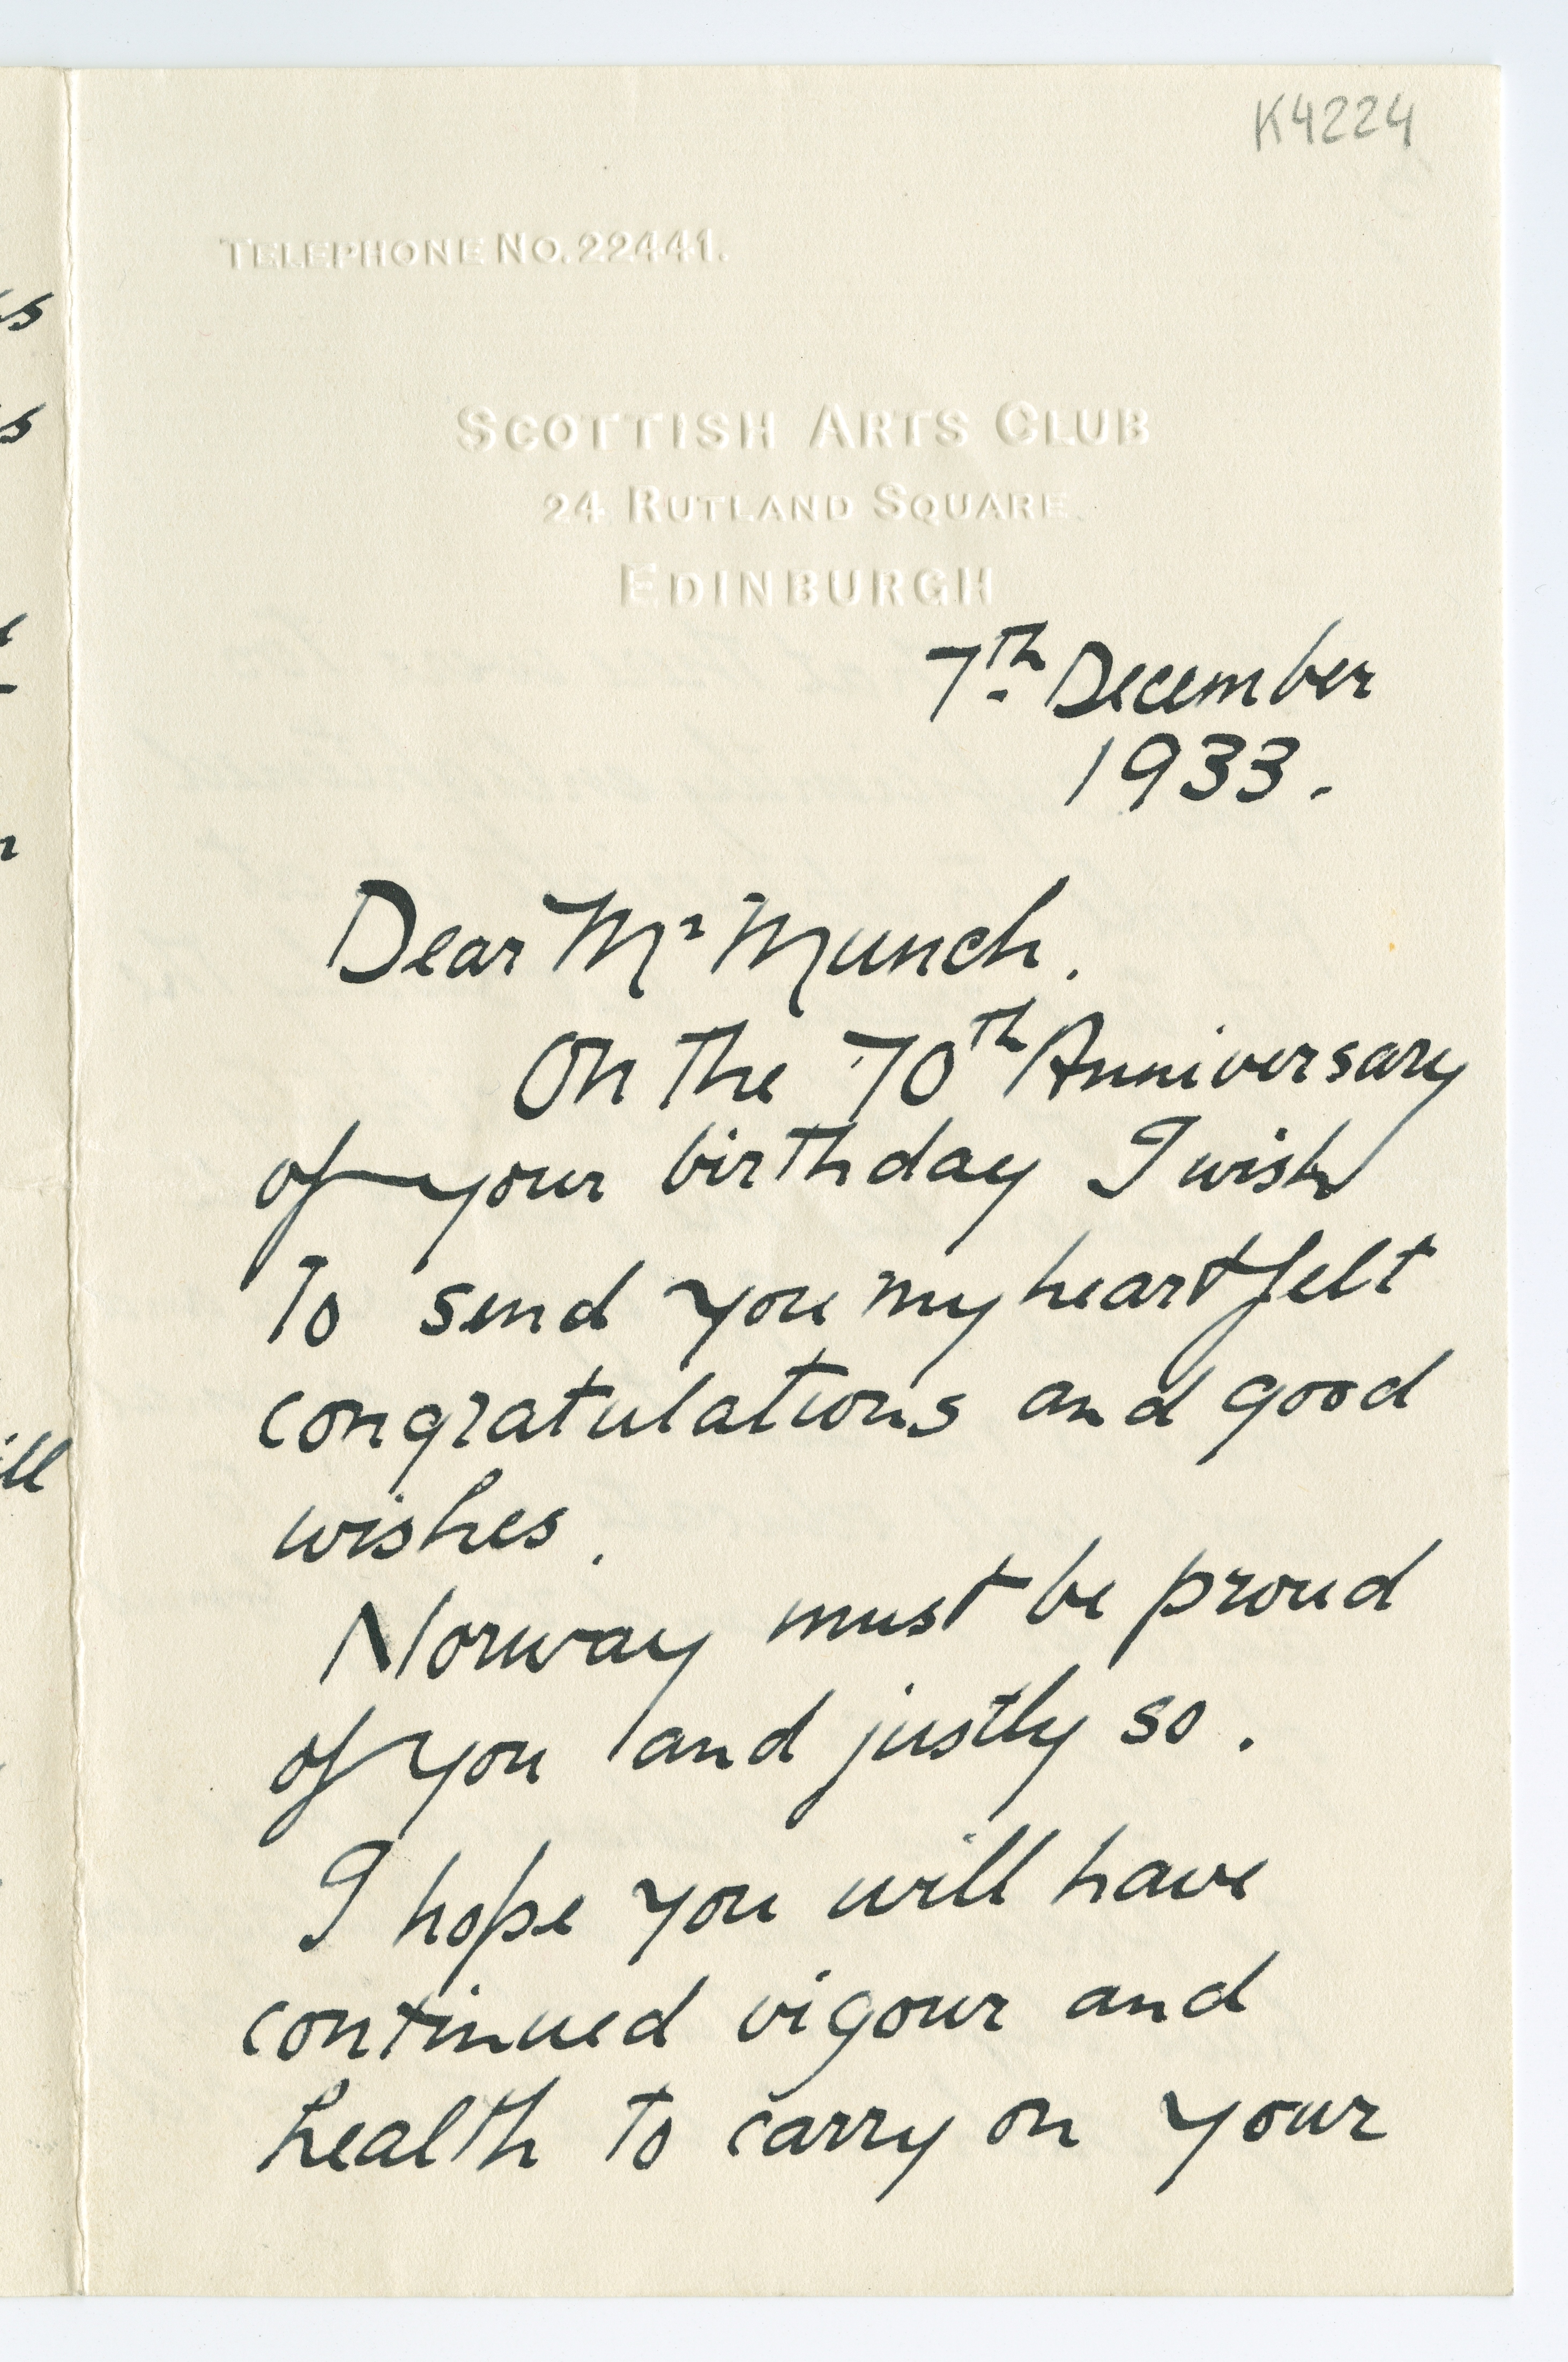 K4224
TELEPHONE NO. 22441.
SCOTTISH ARTS CLUB
24 RUTLAND SQUARE.
EDINBURGH
7th December
1933.
Dear Mr Munch.
On the 70th Anniversary
of your birthday I wish
to send you my heartfelt
congratulations and good
wishes.
Norway must be proud
of you and justly so.
I hope you will have
continued vigour and
health to carry on your